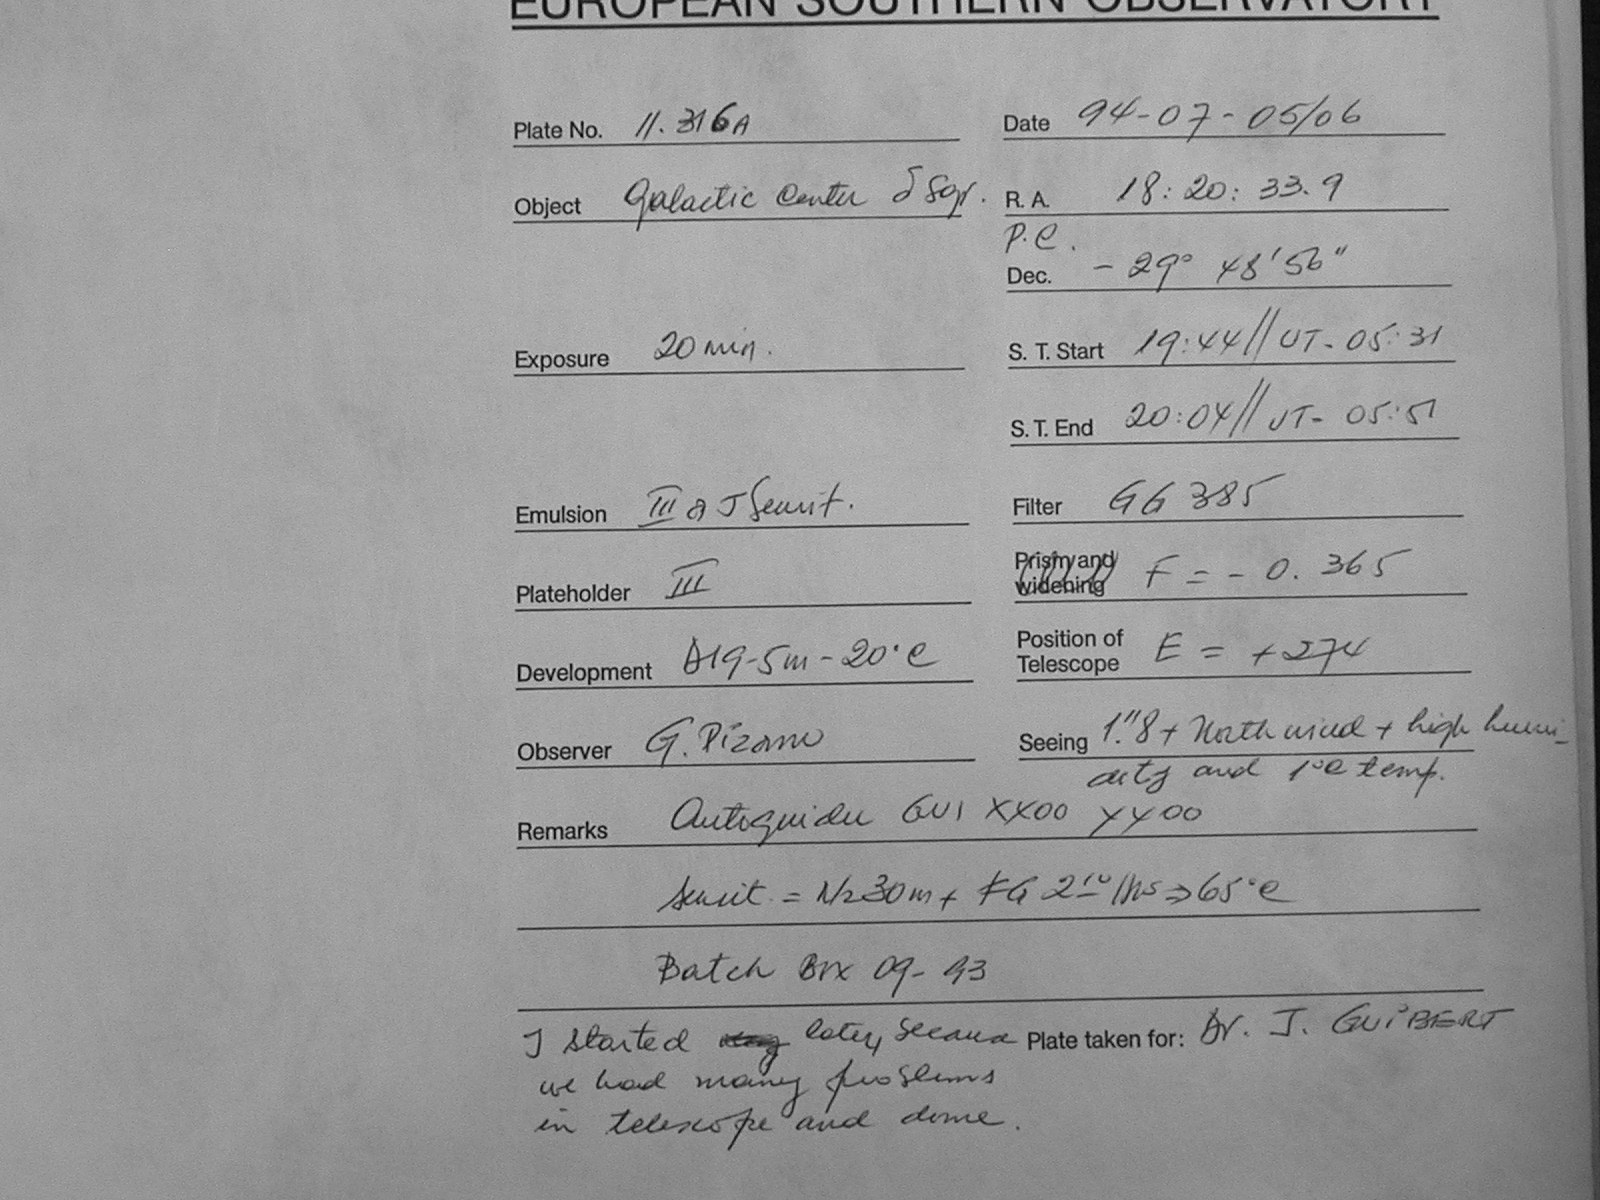 EUROPEAN SOUTHERN OBSERVATORY
Plate No. 11.316A Date 94-07-05/06
Object Galactic Center δ Sgr. R. A. 18:20:33.9
P.C.
Dec. -29° 48'56"
Exposure 20 min. S. T. Start 19:44// UT- 05:31
S. T. End 20:04// UT- 05:51
Emulsion III a J Sensit. Filter GG 385
Plateholder III Prism and widening F = - 0.365
Development D19-5m-20°C Position of Telescope E = +274
Observer G. Pizarro Seeing 1."8 + North wind + high humi-
dity and 1°C temp.
Remarks Autoguider GU1 XX00 YY00
Sensit. = N2 30m + FG 2 hs → 65°C
Batch Box 09-93
I started later, because Plate taken for: Dr. J. GUIBERT
we had many problems
in telescope and dome.